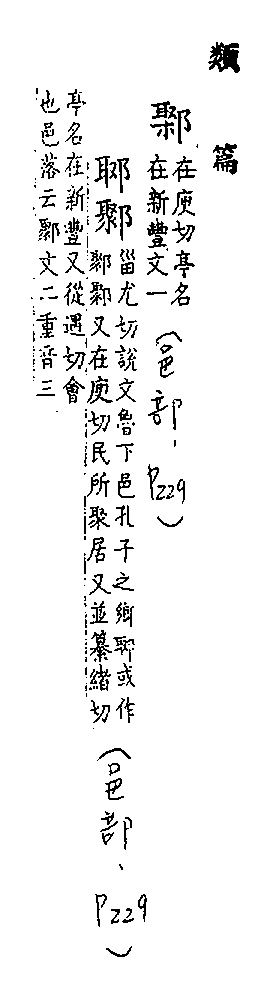 類篇
鄹 在庾切亭名
在新豐文一 (邑部、P229)
郰鄹 甾尤切說文魯下邑孔子之鄉郰或作
鄹鄹又在庾切民所聚居又並纂緒切 (邑部、P229)
亭名在新豐又從遇切會
也邑落云鄹文二重音三